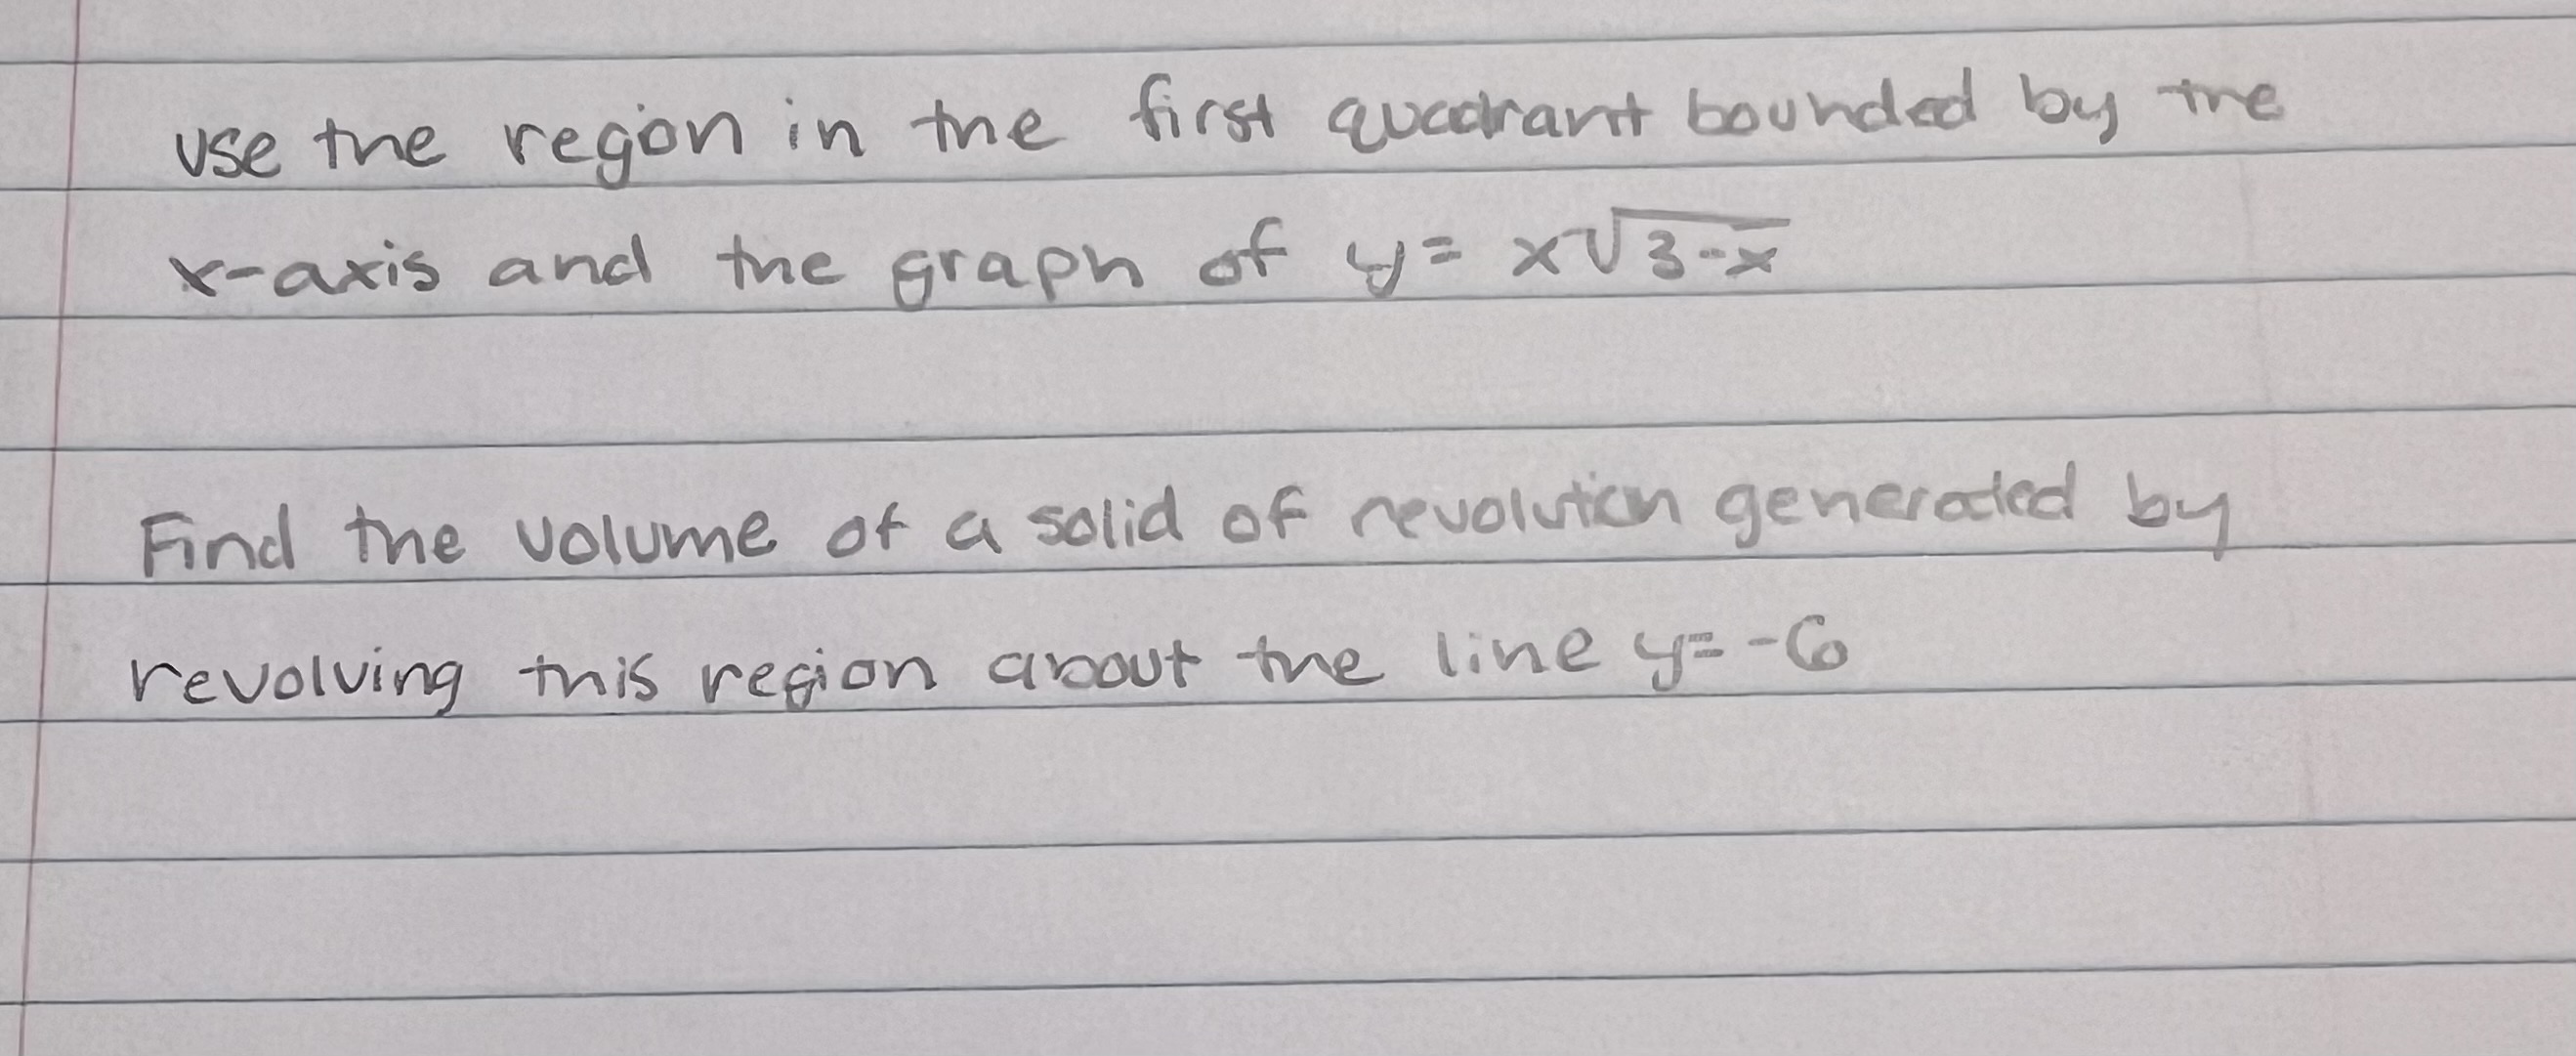 use the region in the first quadrant bounded by the
x-axis and the graph of y= x√3-x
Find the volume of a solid of revolution generated by
revolving this region about the line y=-6